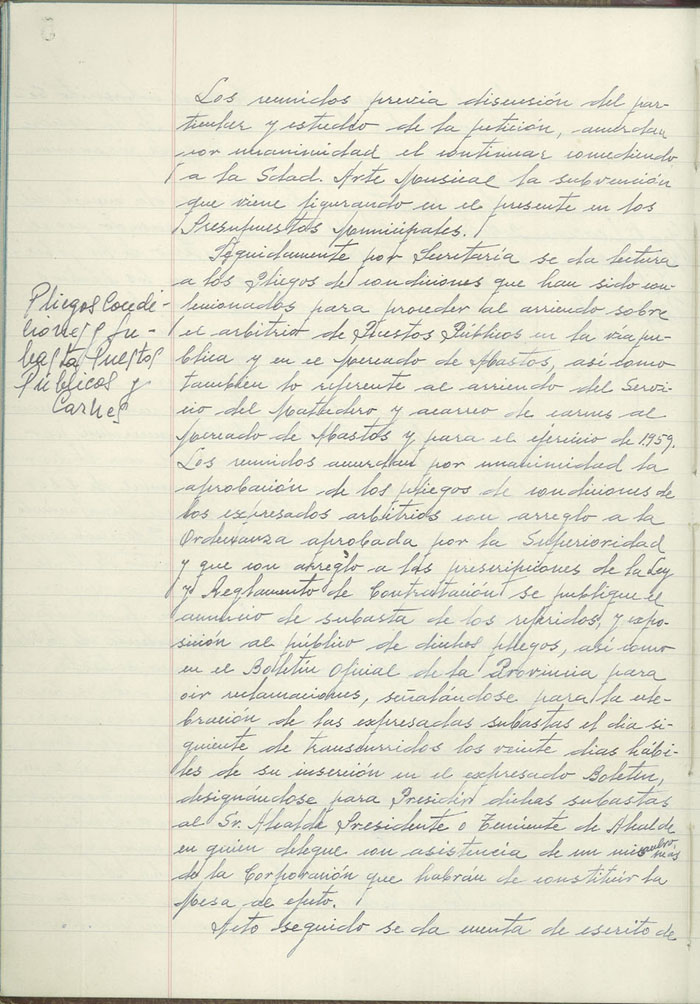 Los reunidos previa discusión del par-
ticular y estudio de la petición, acuerdan
por unanimidad el continuar concediendo
a la Sdad. Arte Musical la subvención
que viene figurando en el presente en los
Presupuestos Municipales.
Seguidamente por Secretaría se da lectura
a los Pliegos de condiciones que han sido con-
feccionados para proceder al arriendo sobre
el arbitrio de Puestos Públicos en la vía pu-
blica y en el Mercado de Abastos, así como
tambien lo referente al arriendo del Servi-
cio del Matadero y acarreo de carnes al
Mercado de Abastos y para el ejercicio de 1959.
Los reunidos acuerdan por unanimidad la
aprobación de los pliegos de condiciones de
los expresados arbitrios con arreglo a la
Ordenanza aprobada por la Superioridad
y que con arreglo a las prescripciones de la Ley
y Reglamento de Contratación se publique el
anuncio de subasta de los referidos, y expo-
sición al público de dichos pliegos, así como
en el Boletín Oficial de la Provincia para
oir reclamaciones, señalándose para la cele-
bración de las expresadas subastas el dia si-
guiente de transcurridos los veinte dias hábi-
les de su inserción en el expresado Boletín,
designándose para Presidir dichas subastas
al Sr. Alcalde Presidente o Teniente de Alcalde
en quien delegue con asistencia de un miembro mas
de la Corporación que habrán de constituir la
Mesa de efecto.
Acto seguido se da cuenta de escrito de
Pliegos Condi-
ciones Su-
basta Puestos
Públicos y
Carnes